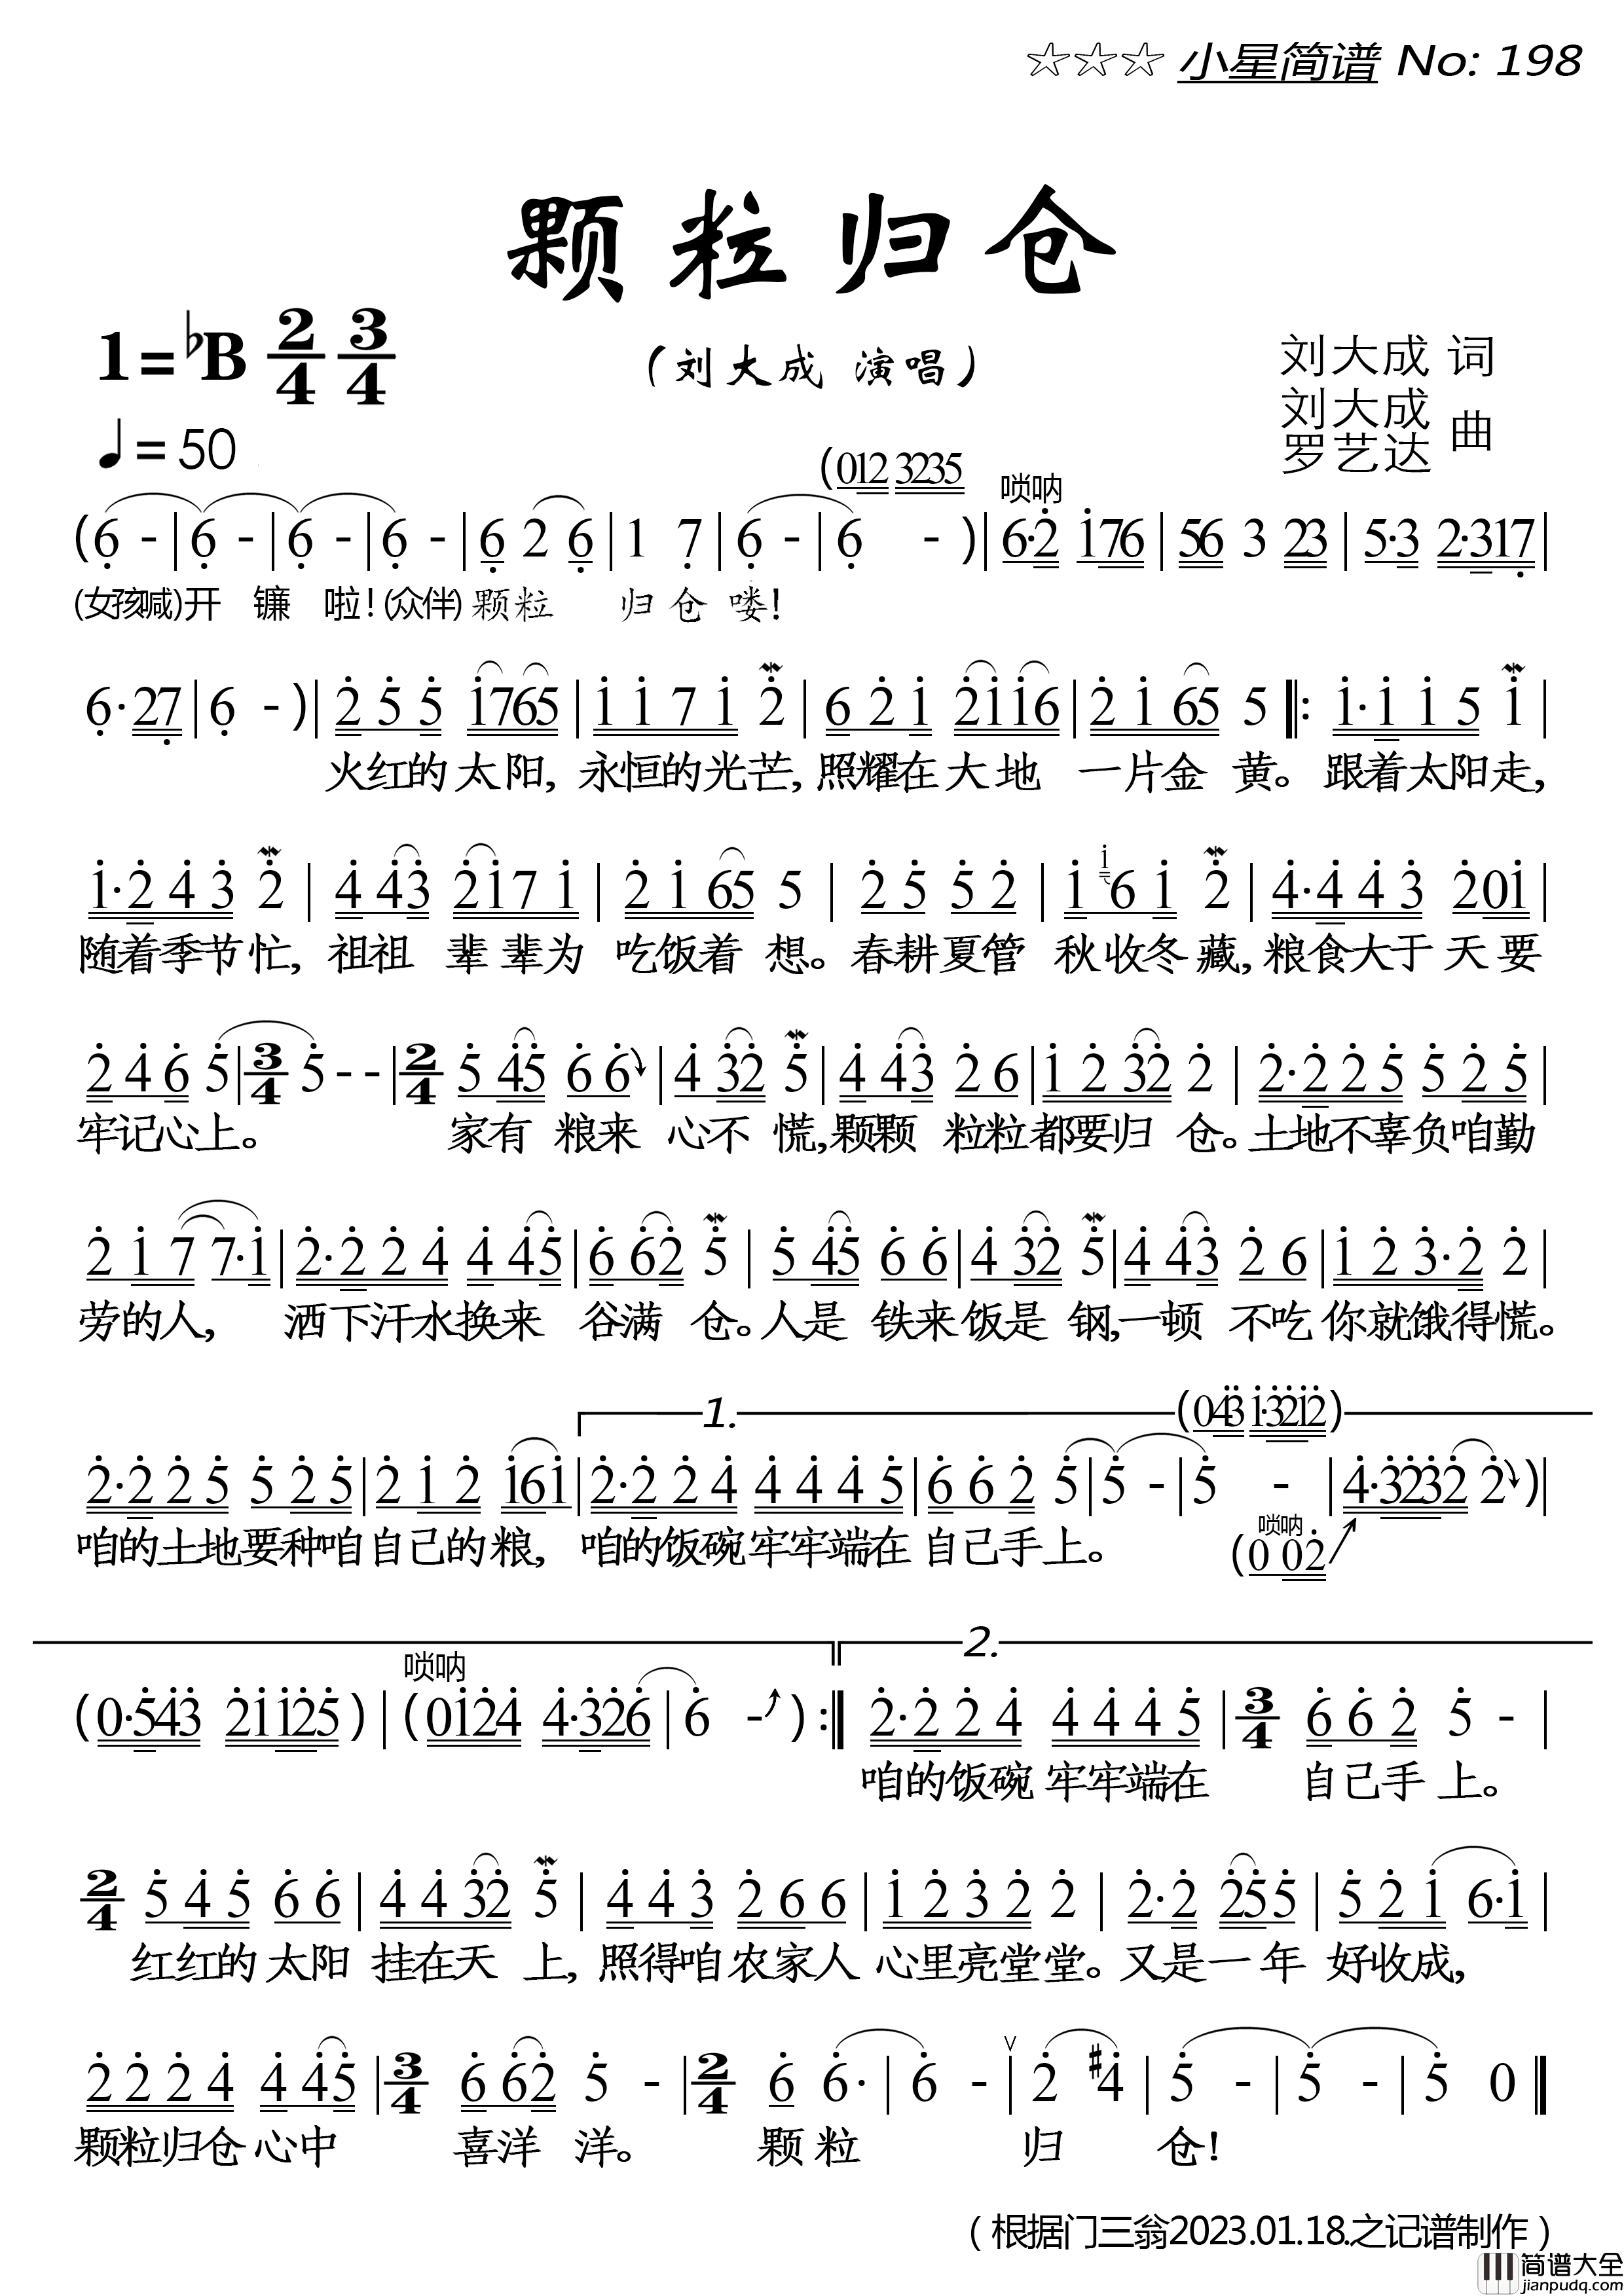 ☆☆☆ 小星简谱 No: 198
颗粒归仓
1=♭B 2/4 3/4
(刘大成 演唱)
刘大成 词
刘大成 罗艺达 曲
♩=50
(012 3235
(6 - | 6 - | 6 - | 6 - | 6 2 6 | 1 7 | 6 - | 6 - ) | 唢呐 6·2 176 | 56 3 23 | 5·3 2·317 |
(女孩喊)开 镰 啦！(众伴)颗粒 归仓喽！
6·27 | 6 - ) | 2 5 5 1765 | 1 1 7 1 2 | 6 2 1 2116 | 2 1 65 5 ‖: 1·1 1 5 1 |
火红的太阳, 永恒的光芒, 照耀在大地 一片金 黄。跟着太阳走,
1·2 4 3 2 | 4 43 217 1 | 2 1 65 5 | 2 5 5 2 | 1 i6 1 2 | 4·4 4 3 201 |
随着季节忙, 祖祖 辈辈为 吃饭着 想。春耕夏管 秋收冬藏, 粮食大于天要
2 4 6 5 | 3/4 5 - - | 2/4 5 45 6 6 | 4 32 5 | 4 43 2 6 | 1 2 32 2 | 2·2 2 5 5 2 5 |
牢记心上。 家有 粮来 心不 慌, 颗颗 粒粒都要归 仓。土地不辜负咱勤
2 1 7 7·1 | 2·2 2 4 4 45 | 6 62 5 | 5 45 6 6 | 4 32 5 | 4 43 2 6 | 1 2 3·2 2 |
劳的人, 洒下汗水换来 谷满 仓。人是 铁来饭是 钢,一顿 不吃你就饿得慌。
1. (043 1·3212)
2·2 2 5 5 2 5 | 2 1 2 161 | 2·2 2 4 4 4 4 5 | 6 6 2 5 | 5 - | 5 - | 4·3232 2 ) |
咱的土地要种咱自己的粮, 咱的饭碗牢牢端在 自己手上。 唢呐 (0 02
2.
(0·543 21125) | 唢呐 (0124 4·326 | 6 - ) :‖ 2·2 2 4 4 4 4 5 | 3/4 6 6 2 5 - |
咱的饭碗 牢牢端在 自己手 上。
2/4 5 4 5 6 6 | 4 4 32 5 | 4 4 3 2 6 6 | 1 2 3 2 2 | 2·2 255 | 5 2 1 6·1 |
红红的 太阳 挂在天 上, 照得咱 农家人 心里亮堂堂。又是一 年 好收成,
2 2 2 4 4 45 | 3/4 6 62 5 - | 2/4 6 6· | 6 - | 2 #4 | 5 - | 5 - | 5 0 ‖
颗粒归仓心中 喜洋 洋。 颗粒 归 仓！
（根据门三翁2023.01.18.之记谱制作）
简谱大全
jianpudq.com